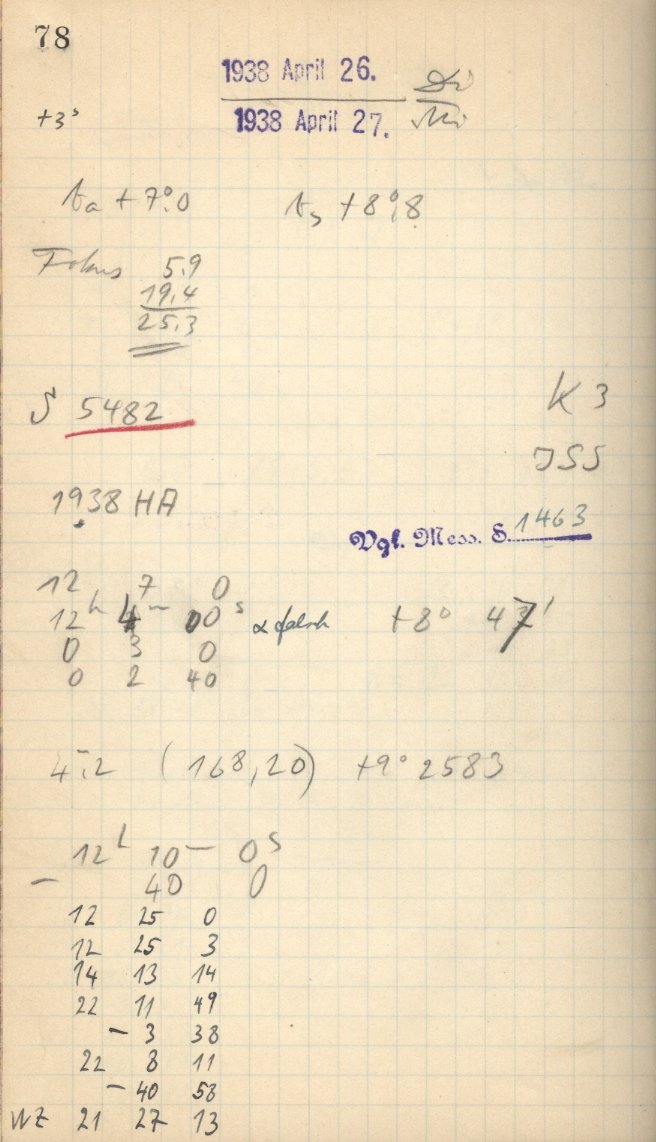 78
1938 April 26. Di
1938 April 27. Mi
+3ˢ
tₐ +7°.0 tₛ +8°.8
Fokus 5.9
19.4
25.3
S 5482
K 3
JSS
1938 HA
Vgl. Mess. S. 1463
12 7 0
12ʰ 4ᵐ 00ˢ α falsch +8° 47'
0 3 0
0 2 40
4ᵐ.2 (168,20) +9° 2583
12ʰ 10ᵐ 0ˢ
– 40 0
12 25 0
12 25 3
14 13 14
22 11 49
– 3 38
22 8 11
– 40 58
WZ 21 27 13